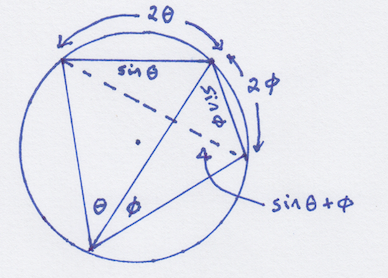 2θ
sin θ
sin φ
2φ
θ
φ
sin θ + φ